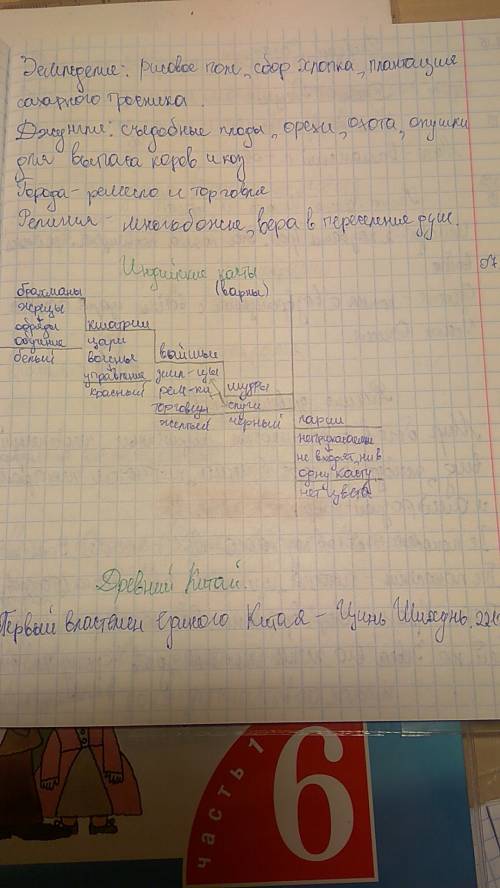 Земледелие: рисовое поле, сбор хлопка, плантации
сахарного тросника.
Джунгли: съедобные плоды, орехи, охота, опушки
для выпаса коров и коз
Города - ремесло и торговля
Религия - многобожие, вера в переселение душ.
Индийские касты
(варны)
брахманы
жрецы
обряды
обучение
белый
кшатрии
цари
военные
управление
красный
вайшьи
земл-цы
рем-ки
торговцы
желтый
шудры
слуги
чёрный
парии
неприкасаемые
не входят ни в
одну касту
нет цвета
Древний Китай.
Первый властелин единого Китая - Цинь Шихуань, 221
часть 1
6